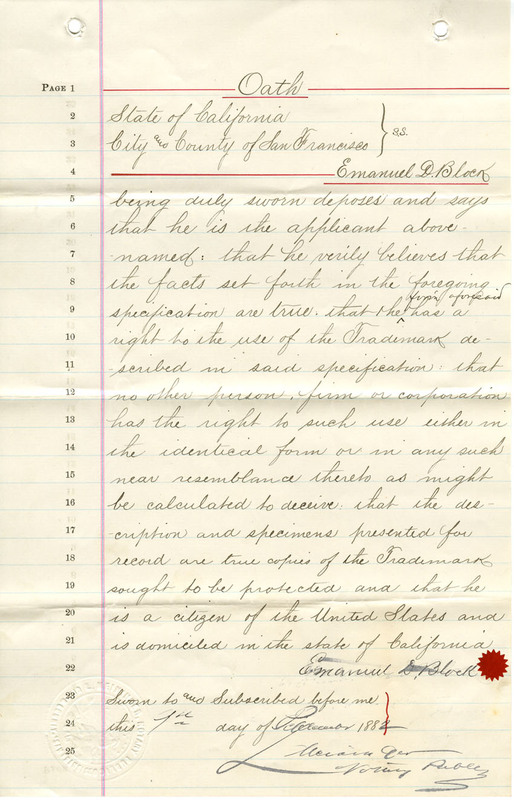 Oath
PAGE 1
2 State of California
3 City and County of San Francisco } s.s.
4 Emanuel D. Block
5 being duly sworn deposes and says
6 that he is the applicant above-
7 -named: that he verily believes that
8 the facts set forth in the foregoing
aforesaid
9 specification are true: that the has a
10 right to the use of the Trademark de-
11 -scribed in said specification: that
12 no other person, firm or corporation
13 has the right to such use either in
14 the identical form or in any such
15 near resemblance thereto as might
16 be calculated to deceive: that the des-
17 -cription and specimens presented for
18 record are true copies of the Trademark
19 sought to be protected and that he
20 is a citizen of the United States and
21 is domiciled in the state of California
22 Emanuel D. Block
23 Sworn to and Subscribed before me
24 this 1st day of 188
25
Notary Public